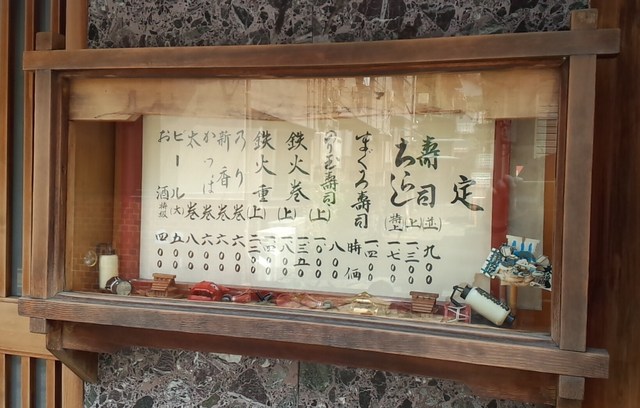 定
寿司 (並) 九〇〇
(上) 一三〇〇
ちらし (特上) 一七〇〇
一四〇〇
まぐろ寿司 時価
のり玉寿司 八〇〇
(上) 一〇〇〇
鉄火巻 一三五〇
(上) 一八〇〇
鉄火重
(上)
のり巻 六〇〇
新香巻 六〇〇
かっぱ巻 六〇〇
太巻 八〇〇
ビール(大) 五〇〇
お酒 特級 四〇〇